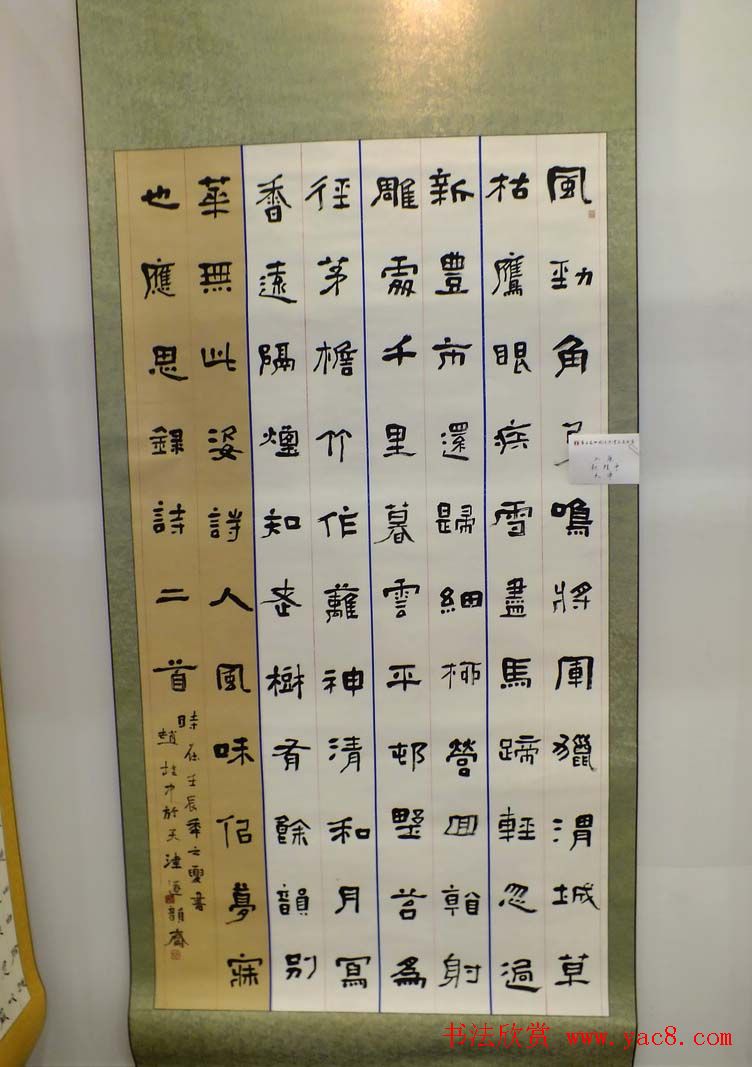 風勁角弓鳴將軍獵渭城草
枯鷹眼疾雪盡馬蹄輕忽過
新豐市還歸細柳營回看射
雕處千里暮雲平邨野苔為
徑茅檐竹作蘺神清和月寫
香遠隔煙知老樹有餘韻別
華無此姿詩人風味佀夢寐
也應思錄詩二首
時在壬辰年之夏書
趙於天津韻齋
书法欣赏 www.yac8.com